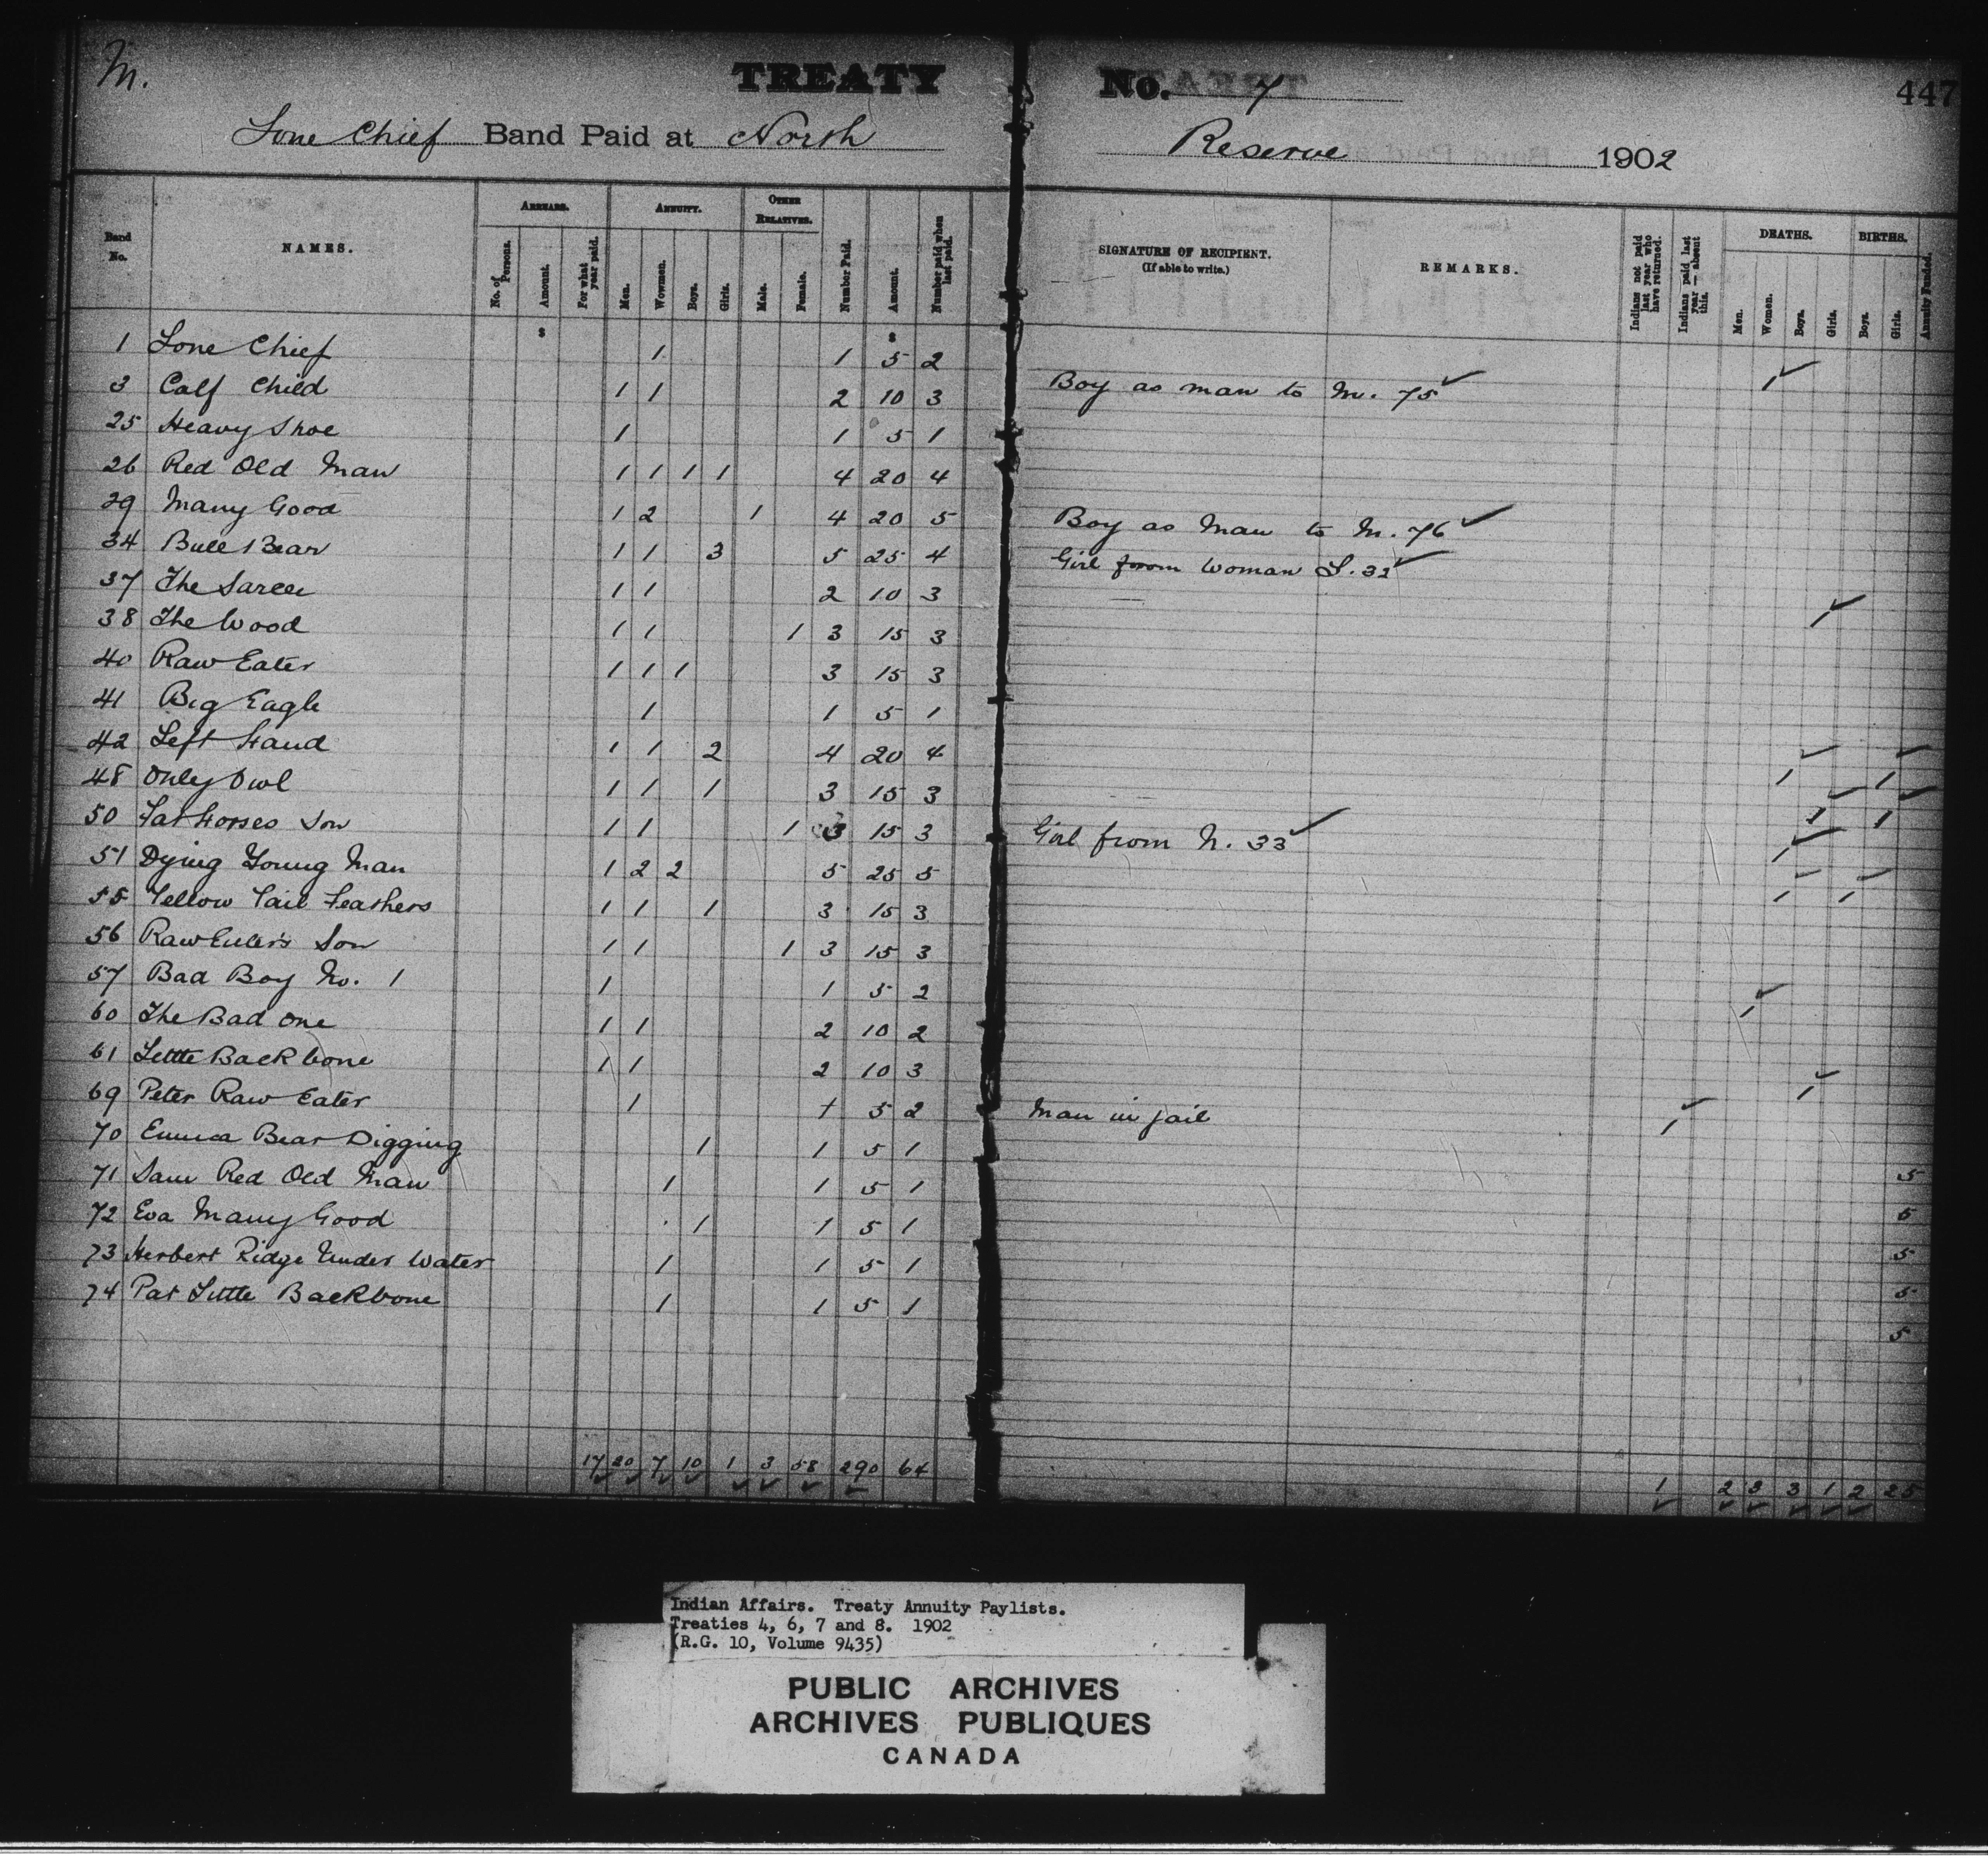 M.
TREATY No. 7 447
Lone Chief Band Paid at North Reserve 1902
Band No. NAMES. ARREARS. No. of Persons. Amount. For what year paid. ANNUITY. Men. Wowmen. Boys. Girls. OTHER RELATIVES. Male. Female. Number Paid. Amount. Number paid when last paid. SIGNATURE OF RECIPIENT. (If able to write.) REMARKS. Indians not paid last year who have returned. Indians paid last year — absent this. DEATHS. Men. Women. Boys. Girls. BIRTHS. Boys. Girls. Annuity Funded.
$ $
1 Lone Chief 1 1 5 2 1 ✓
3 Calf Child 1 1 2 10 3 Boy as man to M. 75 ✓
25 Heavy Shoe 1 1 5 1
26 Red Old Man 1 1 1 1 4 20 4
29 Many Good 1 2 1 4 20 5 Boy as Man to M. 76 ✓
34 Bull Bear 1 1 3 5 25 4 Girl from Woman L. 32 ✓
37 The Sarcee 1 1 2 10 3 1 ✓
38 The Wood 1 1 1 3 15 3
40 Raw Eater 1 1 1 3 15 3
41 Big Eagle 1 1 5 1
42 Left Hand 1 1 2 4 20 4 1 ✓ 1 ✓
48 Only Owl 1 1 1 3 15 3 1 ✓ 1 ✓
50 Fat Horses Son 1 1 1 3 15 3 Girl from N. 33 ✓ 1 ✓
51 Dying Young Man 1 2 2 5 25 5 1 ✓ 1 ✓
55 Yellow Tail Feathers 1 1 1 3 15 3
56 Raw Eater's Son 1 1 1 3 15 3
57 Bad Boy No. 1 1 1 5 2 1 ✓
60 The Bad One 1 1 2 10 2
61 Little Backbone 1 1 2 10 3 1 ✓
69 Peter Raw Eater 1 1 5 2 Man in jail 1 ✓
70 Emma Bear Digging 1 1 5 1 5
71 Sam Red Old Man 1 1 5 1 5
72 Eva Many Good 1 1 5 1 5
73 Herbert Ridge Under Water 1 1 5 1 5
74 Pat Little Backbone 1 1 5 1 5
17 20 7 10 1 3 58 290 64 1 2 3 3 1 2 25
Indian Affairs. Treaty Annuity Paylists.
Treaties 4, 6, 7 and 8. 1902
(R.G. 10, Volume 9435)
PUBLIC ARCHIVES
ARCHIVES PUBLIQUES
CANADA